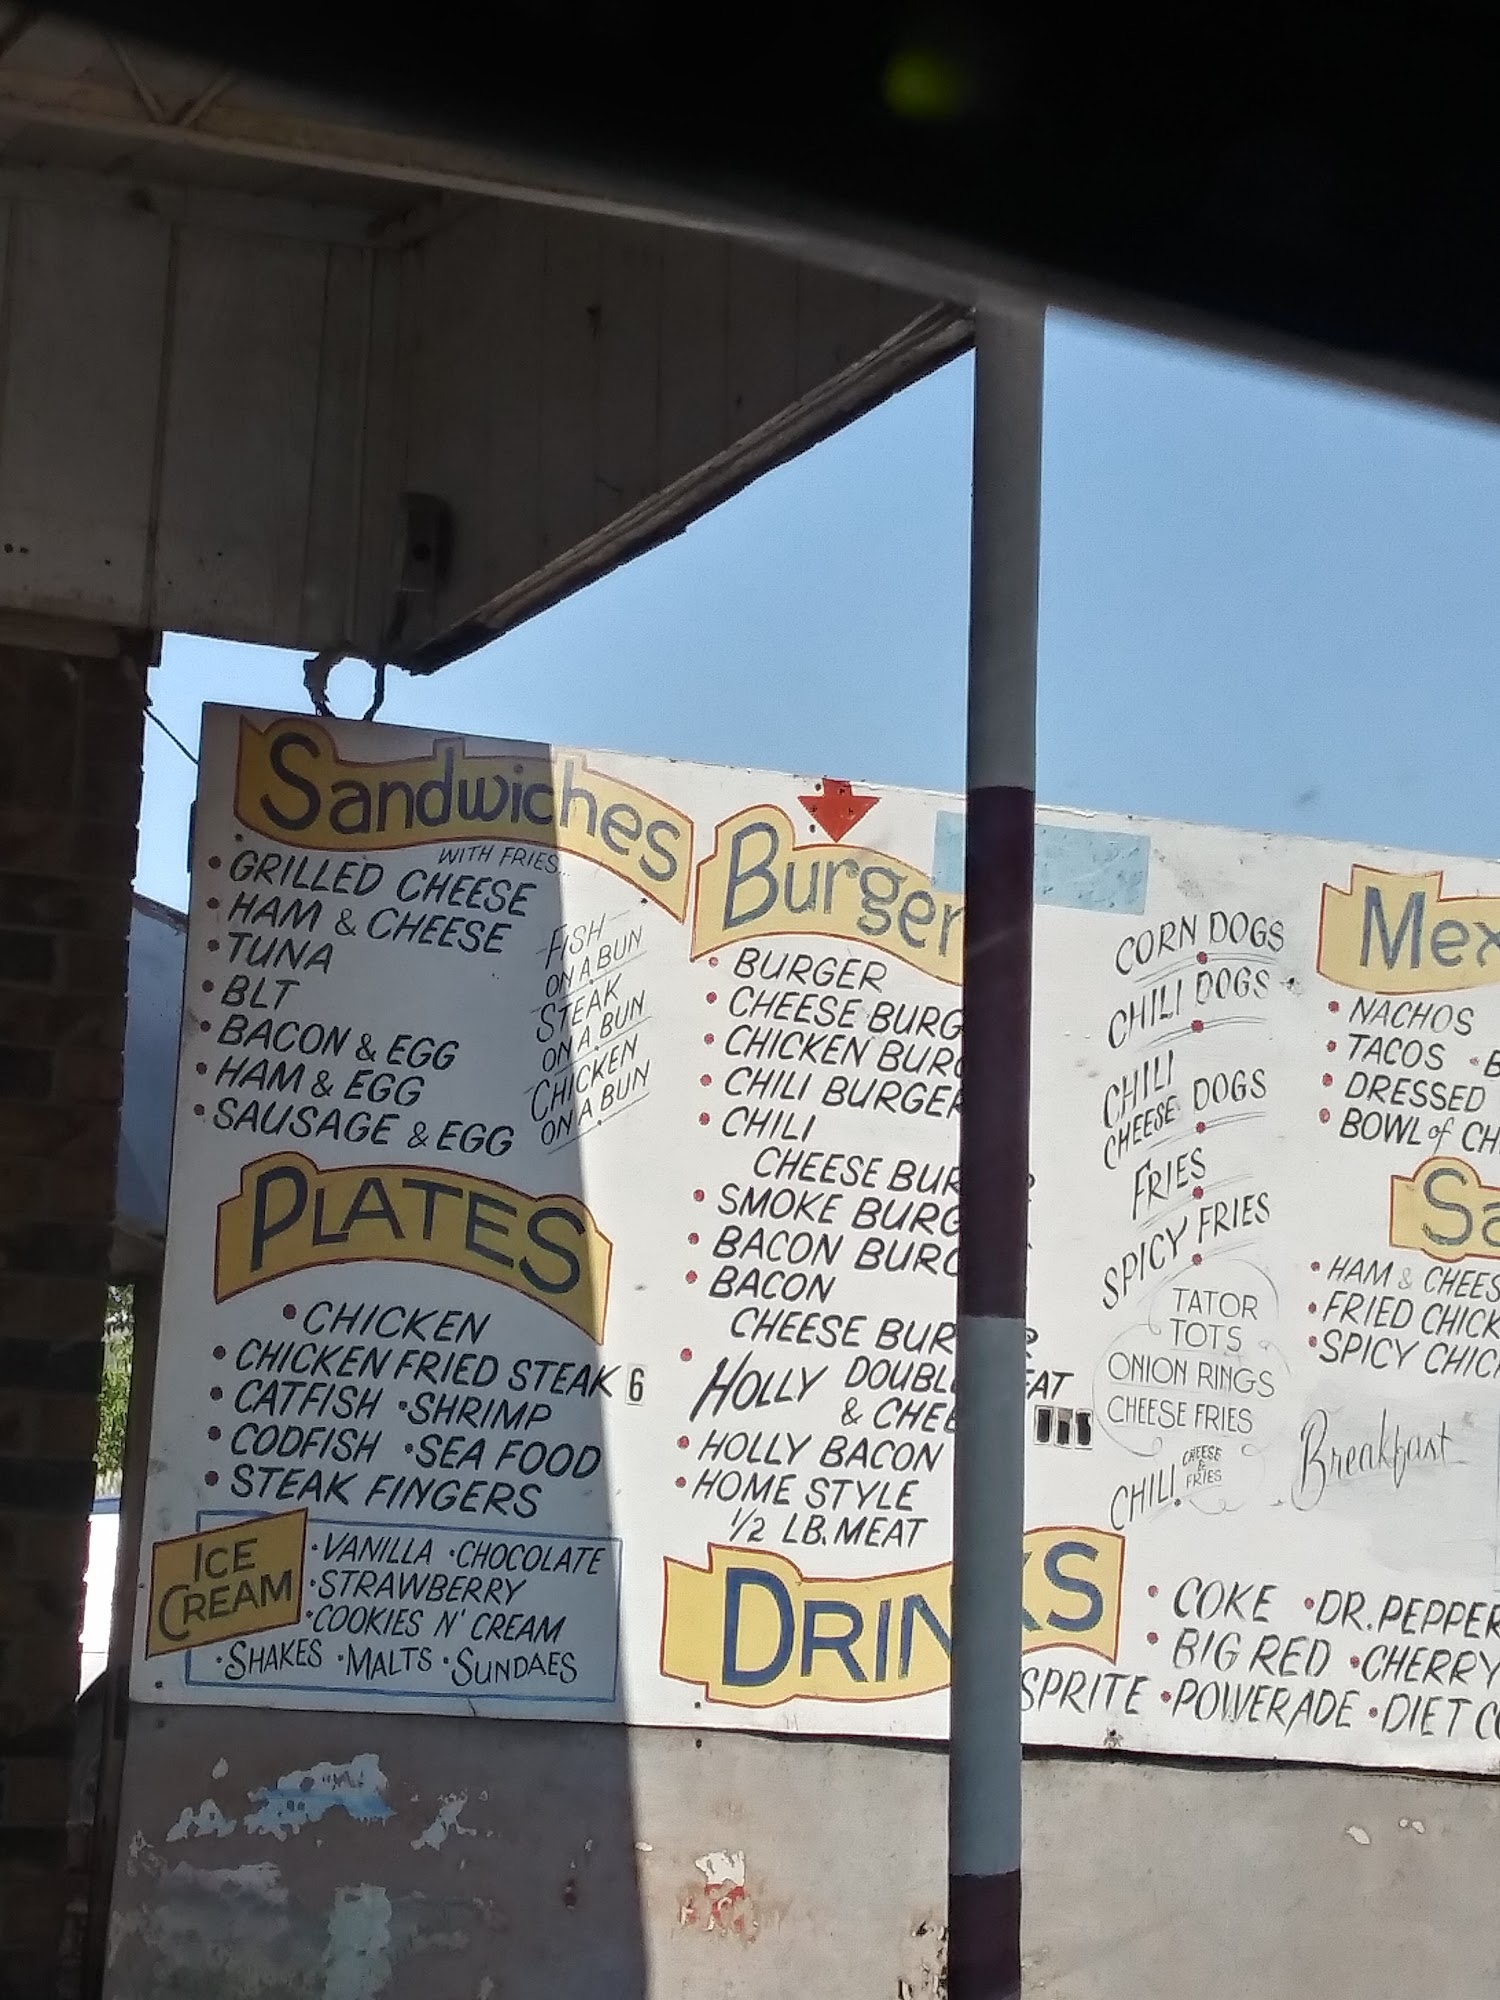 Sandwiches
WITH FRIES...
GRILLED CHEESE
HAM & CHEESE
TUNA
BLT
BACON & EGG
HAM & EGG
SAUSAGE & EGG
FISH
ON A BUN
STEAK
ON A BUN
CHICKEN
ON A BUN
PLATES
CHICKEN
CHICKEN FRIED STEAK 6
CATFISH • SHRIMP
CODFISH • SEA FOOD
STEAK FINGERS
ICE
CREAM
• VANILLA • CHOCOLATE
• STRAWBERRY
• COOKIES N' CREAM
• SHAKES • MALTS • SUNDAES
Burger
BURGER
CHEESE BURG
CHICKEN BURG
CHILI BURGER
CHILI
CHEESE BUR
SMOKE BURG
BACON BURG
BACON
CHEESE BUR
HOLLY DOUBL EAT
& CHEE
HOLLY BACON
HOME STYLE
1/2 LB. MEAT
CORN DOGS
CHILI DOGS
CHILI
CHEESE DOGS
FRIES
SPICY FRIES
TATOR
TOTS
ONION RINGS
CHEESE FRIES
CHILI CHEESE & FRIES
Mex
NACHOS
TACOS • B
DRESSED
BOWL of CH
Sa
HAM & CHEES
FRIED CHICK
SPICY CHIC
Breakfast
DRINKS
COKE • DR. PEPPER
BIG RED • CHERRY
SPRITE • POWERADE • DIET CO